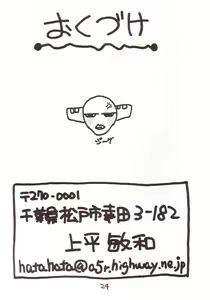 おくづけ
ジーッ
〒270-0001
千葉県松戸市幸田3-182
上平 敏和
hatahata@a5r.highway.ne.jp
24